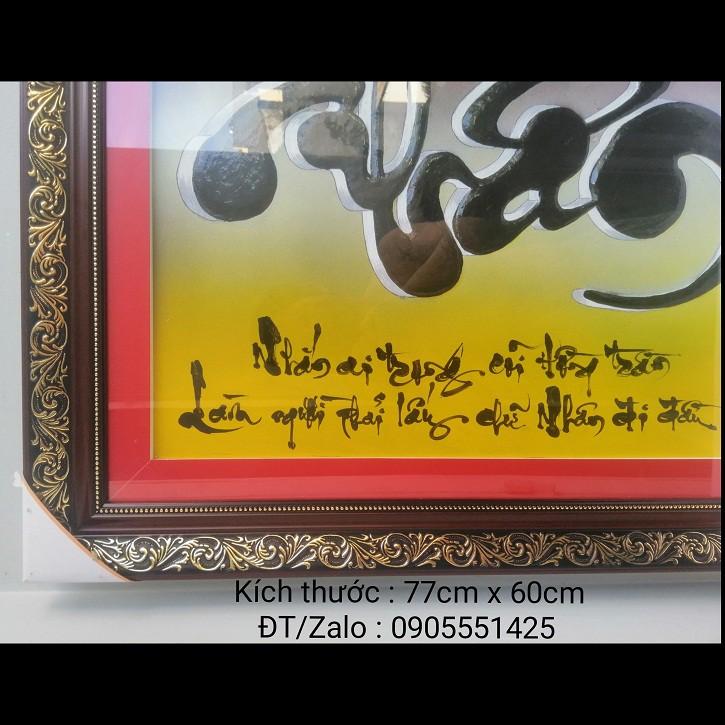 Nhân
Nhắn ai trong cõi hồng trần
Làm người phải lấy chữ Nhân đi đầu
Kích thước : 77cm x 60cm
ĐT/Zalo : 0905551425